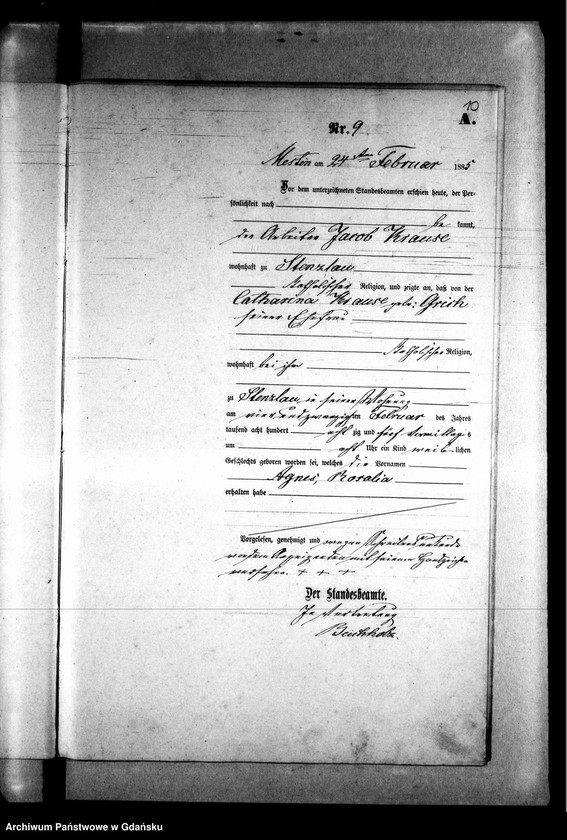 10
A.
Nr. 9
Mestin am 24ten Februar 1885
Vor dem unterzeichneten Standesbeamten erschien heute, der Per-
sönlichkeit nach
be kannt,
der Arbeiter Jacob Krause
wohnhaft zu Stenzlau
katholischer Religion, und zeigte an, daß von der
Catharina Krause geb: Grich
seiner Ehefrau
katholischer Religion,
wohnhaft bei ihm
zu Stenzlau in seiner Wohnung
am vier und zwanzigsten Februar des Jahres
tausend acht hundert acht zig und fünf Vormittags
um acht Uhr ein Kind weib lichen
Geschlechts geboren worden sei, welches die Vornamen
Agnes, Rosalia
erhalten habe
Vorgelesen, genehmigt und wegen Schreibensunkunde
von dem Anzeigenden mit seinem Handzeichen
versehen. + + +
Der Standesbeamte.
In Vertretung
Archiwum Państwowe w Gdańsku